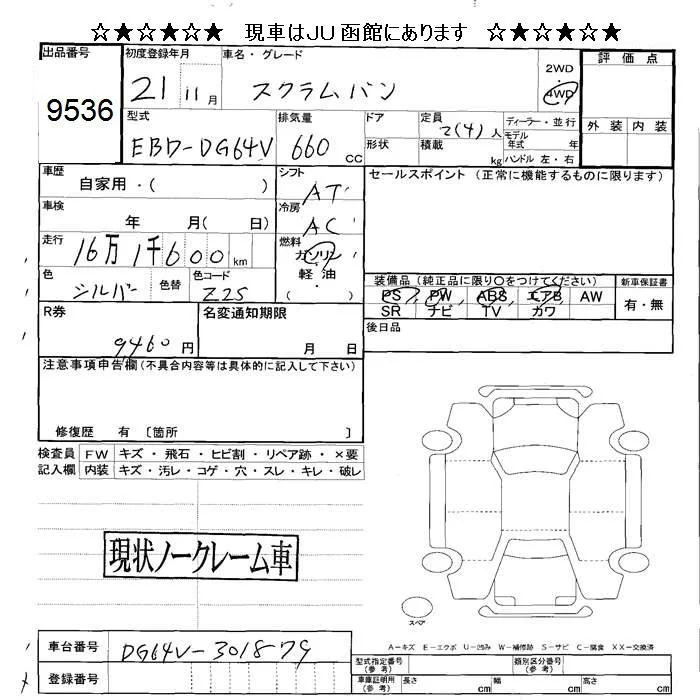 ☆★☆★☆★ 現車はJU函館にあります ☆★☆★☆★
出品番号 初度登録年月 車名・グレード 2WD 評価点
9536 21 11月 スクラムバン 4WD
型式 排気量 ドア 定員 2(4)人 ディーラー・並行 外装 内装
EBD-DG64V 660 CC 形状 積載 kg モデル年式 年
ハンドル 左・右
車歴 自家用・( ) シフト AT セールスポイント (正常に機能するものに限ります)
車検 年 月( 日) 冷房 AC
走行 16万1千600km 燃料 ガソリン
軽油
( )
色 シルバー 色替 色コード Z2S
装備品 (純正品に限り〇をつけてください) 新車保証書
PS PW ABS エアB AW 有・無
SR ナビ TV カワ
R券 9460円 名変通知期限 月 日 後日品
注意事項申告欄(不具合内容等は具体的に記入して下さい)
修復歴 有 〔箇所 〕
検査員 FW キズ・飛石・ヒビ割・リペア跡・×要
記入欄 内装 キズ・汚レ・コゲ・穴・スレ・キレ・破レ
現状ノークレーム車
スペア
車台番号 DG64V-301879
登録番号
A-キズ E-エクボ U-凹み W-補修跡 S-サビ C-腐食 XX-交換済
型式指定番号(参考) 類別区分番号(参考)
車庫証明用(参考) 長さ cm 幅 cm 高さ cm